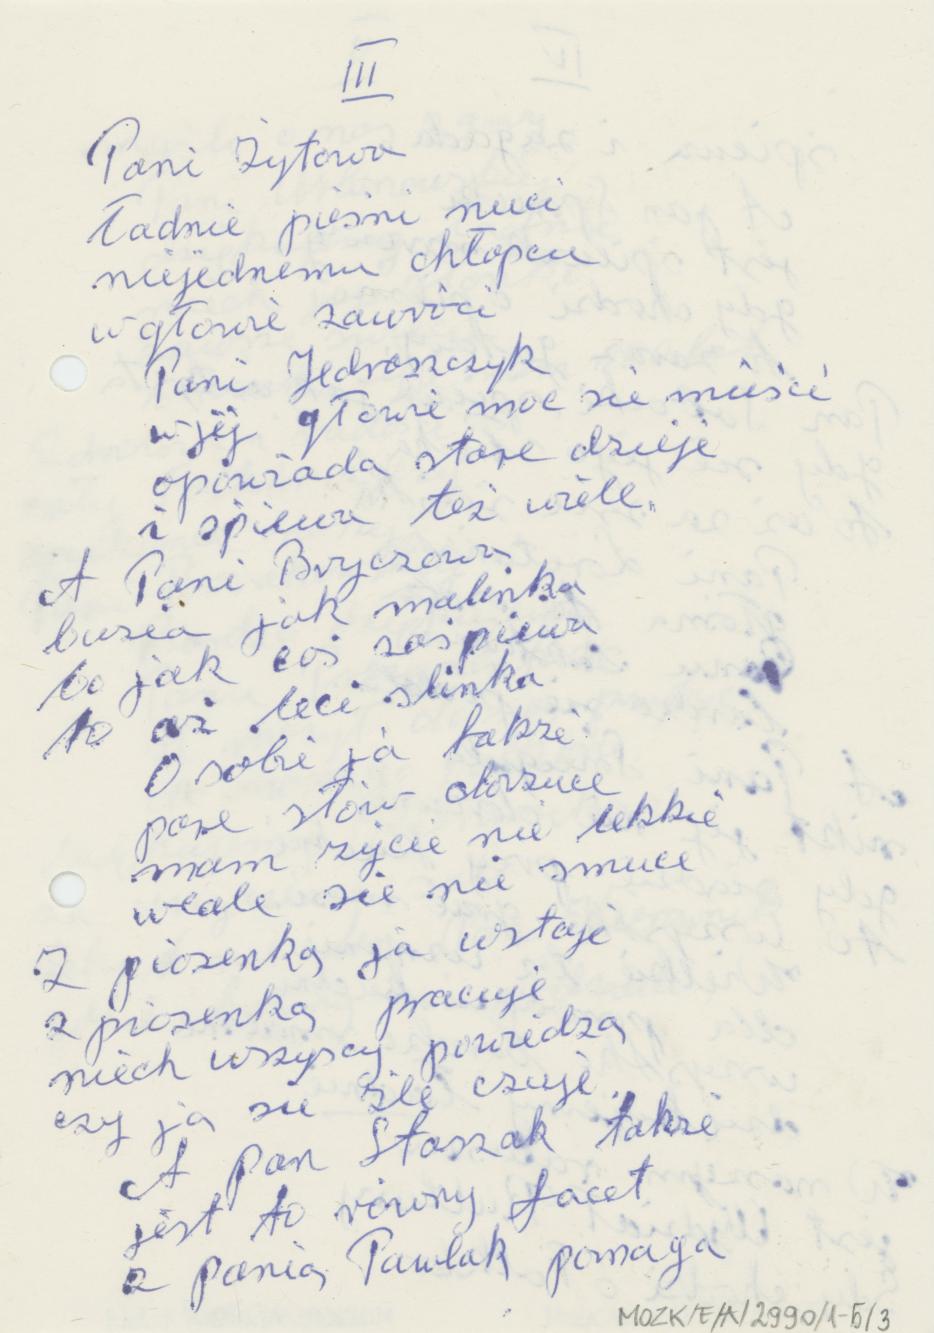 III
Pani Żytowa
Ładnie pieśni nuci
niejednemu chłopcu
w głowie zawróci
Pani Jędraszczyk
w jej głowie moc się mieści
opowiada stare dzieje
i śpiewa też wiele.
A Pani Bryczowa
buzia jak malinka
bo jak coś zaśpiewa
to aż leci slinka
O sobie ja także
parę słów dorzucę
mam życie nie lekkie
wcale się nie smucę
Z piosenką ja wstaję
z piosenką pracuję
niech wszyscy powiedzą
czy ja się źle czuję..
A pan Staszak także
jest to równy facet
z panią Pawlak pomaga
MOZK/E/A/2990/1-5/3